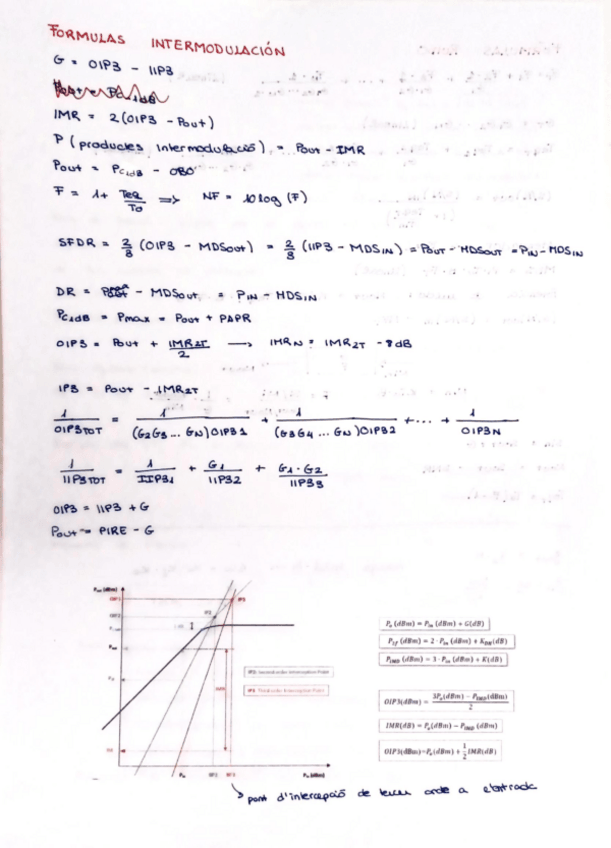 FORMULAS INTERMODULACIÓN
G = OIP3 - IIP3
IMR = 2(OIP3 - Pout)
P (productes intermodulació) = Pout - IMR
Pout = PC1dB - OBO
F = 1 + Teq/To => NF = 10 log (F)
SFDR = 2/3 (OIP3 - MDSout) = 2/3 (IIP3 - MDSIN) = POUT - MDSOUT = PIN - MDSIN
DR = Pout - MDSout = PIN - MDSIN
PC1dB = Pmax = Pout + PAPR
OIP3 = Pout + IMR2T/2 → IMRN = IMR2T - 8dB
IP3 = Pout - IMR2T
1/OIP3TOT = 1/(G2G3 ... GN)OIP31 + 1/(G3G4 ... GN)OIP32 + ... + 1/OIP3N
1/IIP3TOT = 1/IIP31 + G1/IIP32 + G1·G2/IIP33
OIP3 = IIP3 + G
Pout = PIRE - G
IP2: Second order Interception Point
IP3: Third order Interception Point
Po (dBm) = Pin (dBm) + G(dB)
P2f (dBm) = 2 · Pin (dBm) + K2H(dB)
PIMD (dBm) = 3 · Pin (dBm) + K(dB)
OIP3(dBm) = 3Po(dBm) - PIMD(dBm)/2
IMR(dB) = Po(dBm) - PIMD (dBm)
OIP3(dBm)=Po(dBm) + 1/2 IMR(dB)
Pin (dBm)
punt d'intercepció de tercer ordre a l'entrada